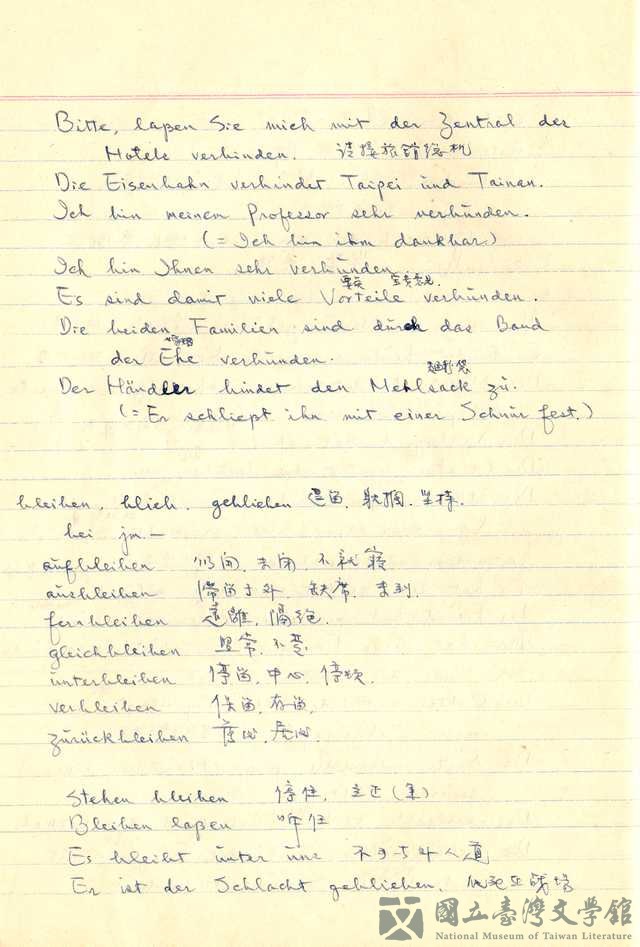 Bitte, laßen Sie mich mit der Zentral des
Hotels verbinden. 请接旅館总机
Die Eisenbahn verbindet Taipei und Tainan.
Ich bin meinen Professor sehr verbunden.
(= Ich bin ihm dankbar.)
Ich bin Ihnen sehr verbunden
Es sind damit viele Vorteile verbunden.
Die beiden Familien sind durch das Band
der Ehe verbunden.
Der Händler bindet den Mehlsack zu.
(= Er schließt ihn mit einer Schnur fest.)
bleiben, blieb, geblieben 逗留, 耽擱, 坚持.
bei jm —
aufbleiben 仍開, 未閉, 不就寢
ausbleiben 滯留于外, 缺席, 未到.
fernbleiben 遠離, 隔绝.
gleichbleiben 照常, 不变.
unterbleiben 停留, 中止, 停顿.
verbleiben 保留, 存留.
zurückbleiben
Stehen bleiben 停住, 立正(軍)
Bleiben laßen
Es bleibt unter uns 不可与外人道
Er ist der Schlacht geblieben. 他死在战場
國立臺灣文學館
National Museum of Taiwan Literature